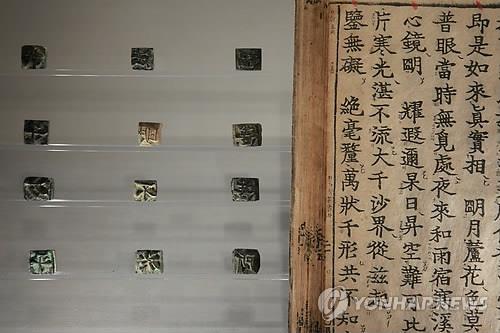 即是如來眞實相 明月蘆花色莫
普眼當時無覓處夜來和雨宿寒溪
心鏡明 耀遐邇杲日昇空難可比
片寒光湛不流大千沙界從茲起
鑒無礙 絕毫釐萬狀千形共不知
YONHAPNEWS